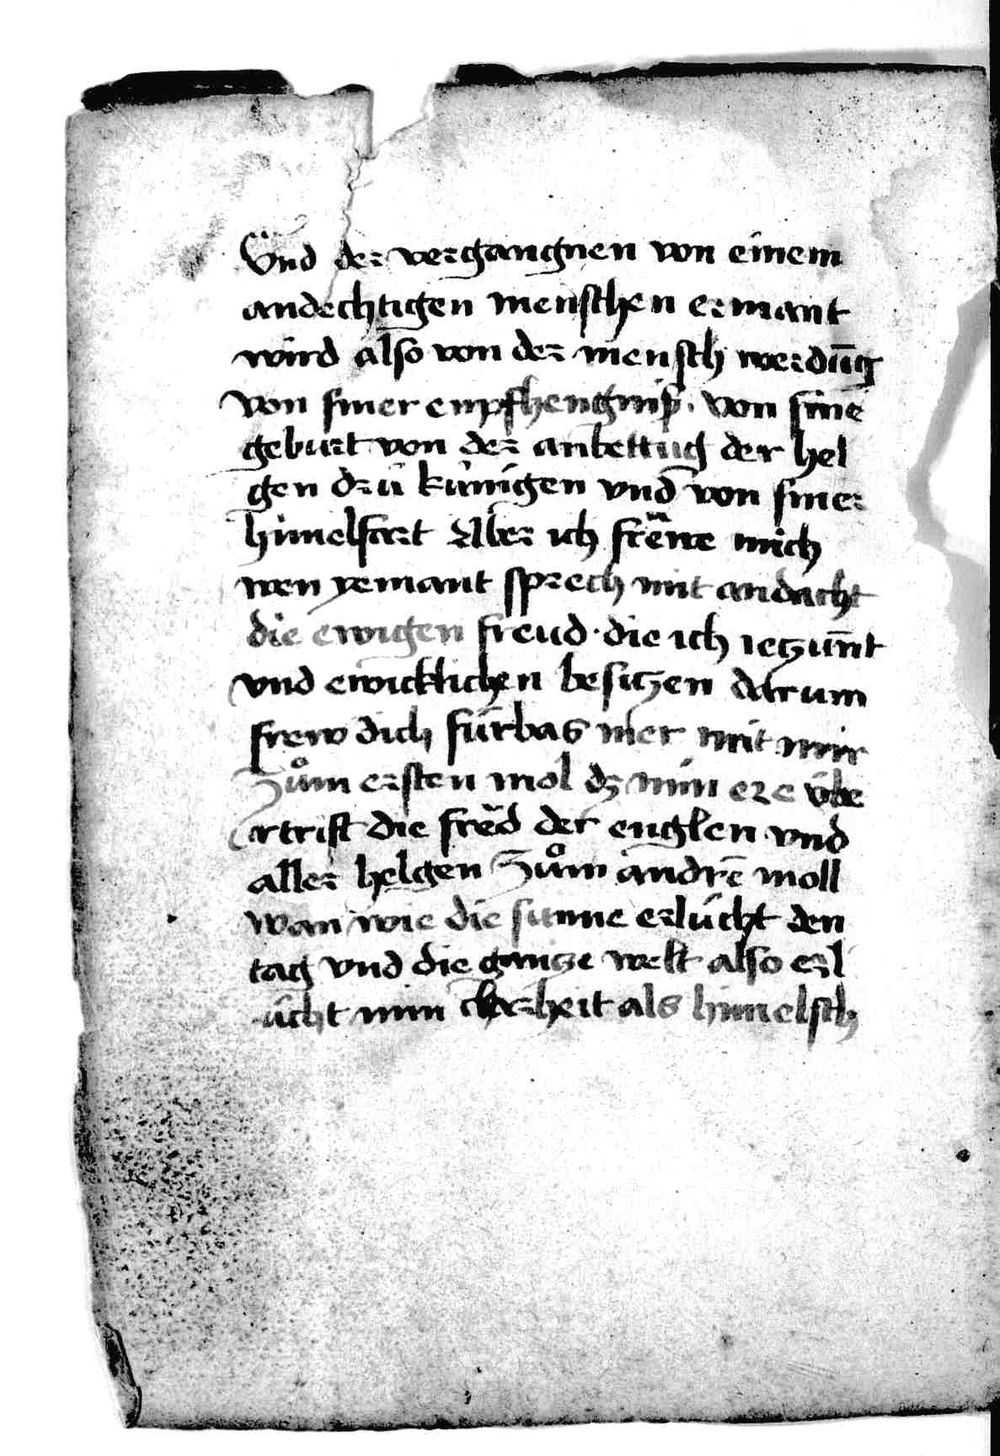 Vnd der vergangnen von einem
andechtigen menschen ermant
wird also von der mensch werdūg
von siner enpfhengniß. von sinē
geburt von der anbettug der hel
gen drü künigen vnd von siner
himelfart Aber ich frëwe mich
wen yemant sprech mit andacht
die ewigen freud · die ich ietzūnt
vnd ewicklichen besitzen darum
frew dich fúrbas mer mit mir
Zům ersten mol dz min ere übe
rtrift die frëd der englen vnd
aller helgen Zům andrē moll
wan wie die sunne erlúcht den
tag vnd die gantze welt also erl
ücht min clarheit als himelsch